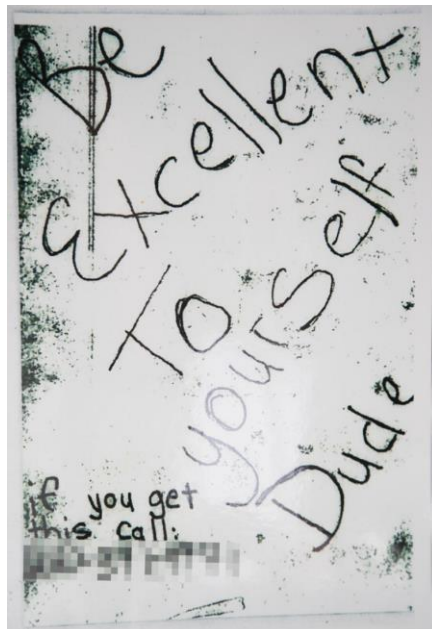 Be
Excellent
To
yourself
Dude
if you get
this call: